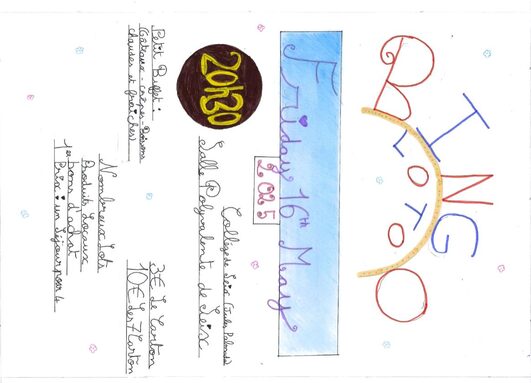 BINGO
LOTO
Friday 16th May
2025
20h30
Salle Polyvalente de Seix
Petit Buffet :
(Gâteaux - crêpes - Boissons
chaudes et fraîches)
3€ Le Carton
10€ Carton
Nombreux Lots
Produits Locaux
bons d'achat
1er Prix : un Séjour pour 4